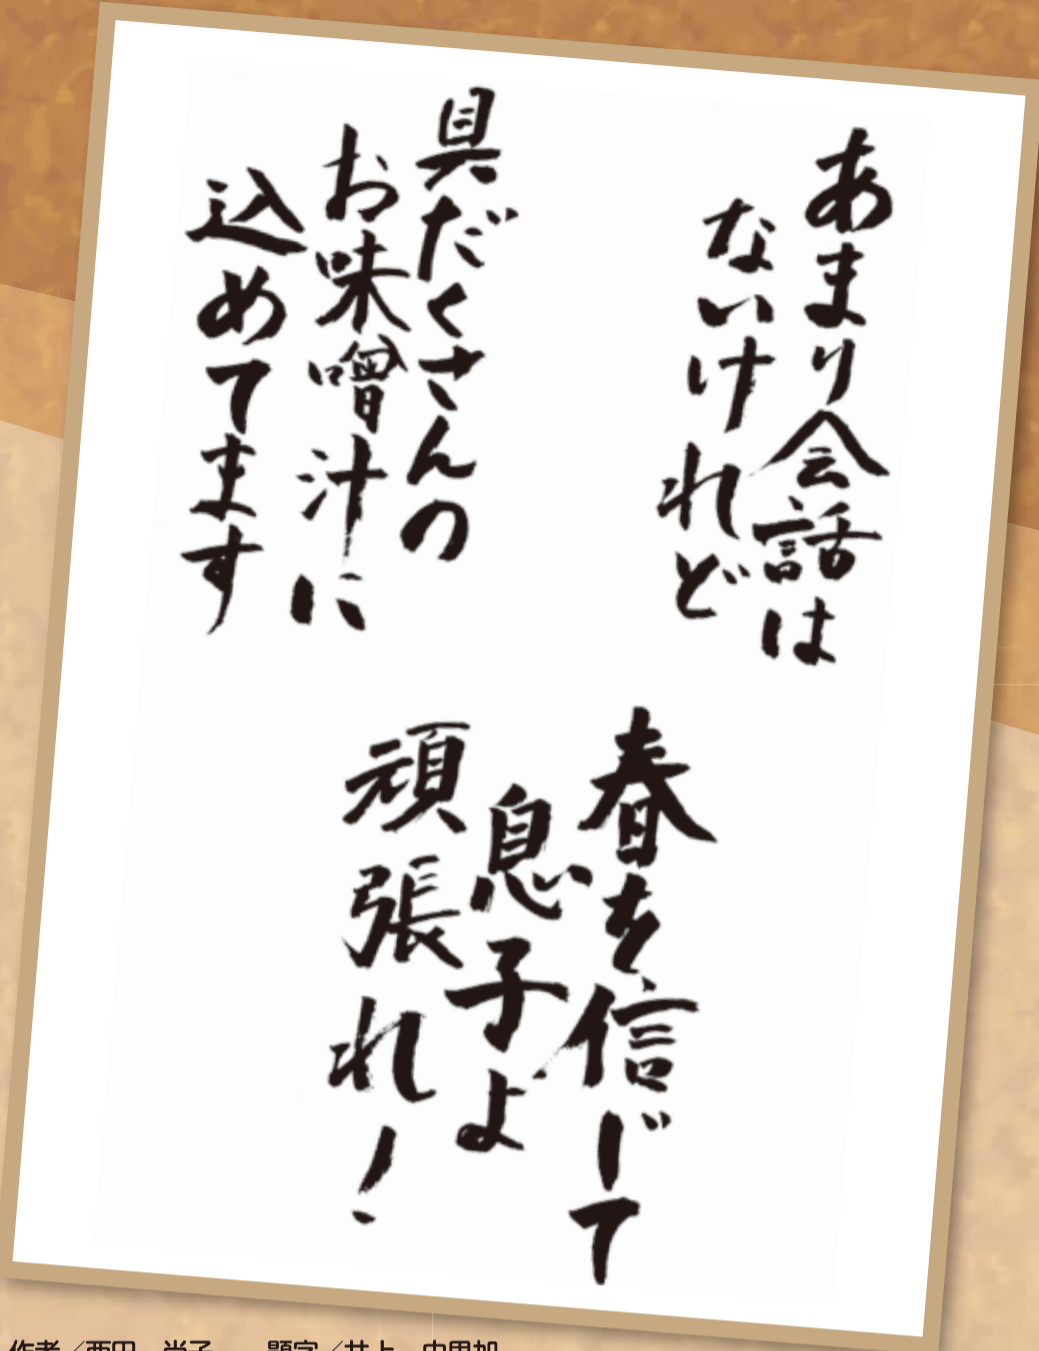 あまり会話は
ないけれど
具だくさんの
お味噌汁に
込めてます
春を信じて
息子よ
頑張れ!
作者／西田　尚子　　題字／井上　由里加